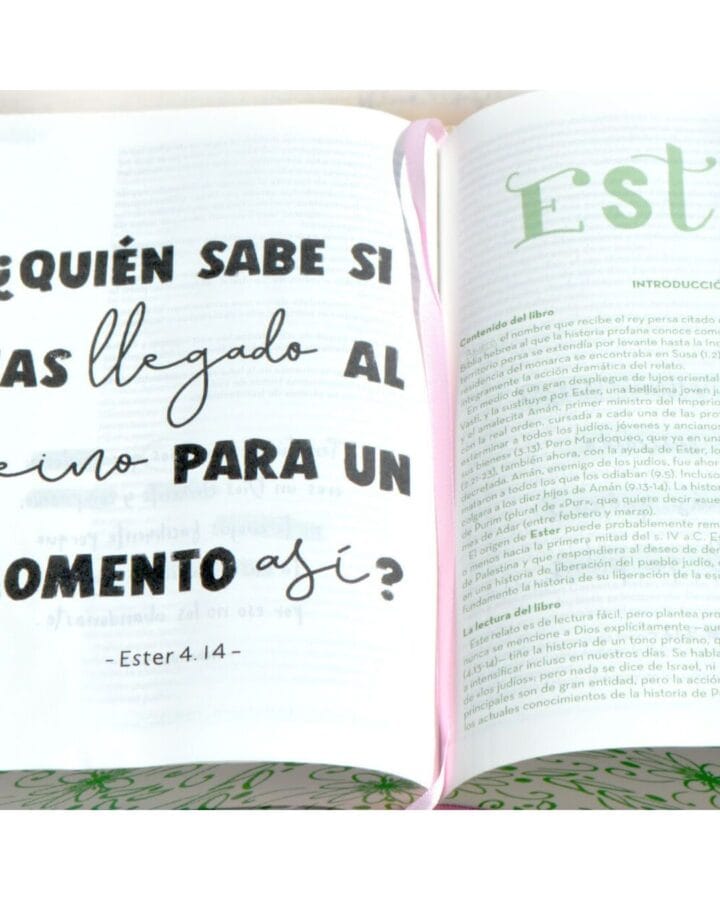 ¿QUIÉN SABE SI
AS llegado AL
eino PARA UN
OMENTO así?
- Ester 4.14 -
Est
INTRODUCCIÓ
Contenido del libro
el nombre que recibe el rey persa citado
Biblia hebrea al que la historia profana conoce com
territorio persa se extendía por levante hasta la In
dencia del monarca se encontraba en Susa (1.2)
íntegramente la acción dramática del relato.
En medio de un gran despliegue de lujos oriental
Vasti, y la sustituye por Ester, una bellísima joven j
y el amalecita Amán, primer ministro del Imperio
con la real orden, cursada a cada una de las prov
exterminar a todos los judíos, jóvenes y anciano
sus bienes» (3.13). Pero Mardoqueo, que ya en un
2.21-23), también ahora, con la ayuda de Ester, lo
decretada. Amán, enemigo de los judíos, fue ahor
mataron a todos los que los odiaban (9.5). Incluso
colgara a los diez hijos de Amán (9.13-14). La histo
de Purim (plural de «Pur», que quiere decir «sue
mes de Adar (entre febrero y marzo).
El origen de Ester puede probablemente rem
o menos hacia la primera mitad del s. IV a.C. Es
de Palestina y que respondiera al deseo de de
en una historia de liberación del pueblo judío,
fundamento la historia de su liberación de la e
La lectura del libro
Este relato es de lectura fácil, pero plantea pro
nunca se mencione a Dios explícitamente —au
(4.13-14)— tiñe la historia de un tono profano, q
a intensificar incluso en nuestros días. Se habla
de «los judíos»; pero nada se dice de Israel, ni
principales son de gran entidad, pero la acción
los actuales conocimientos de la historia de P